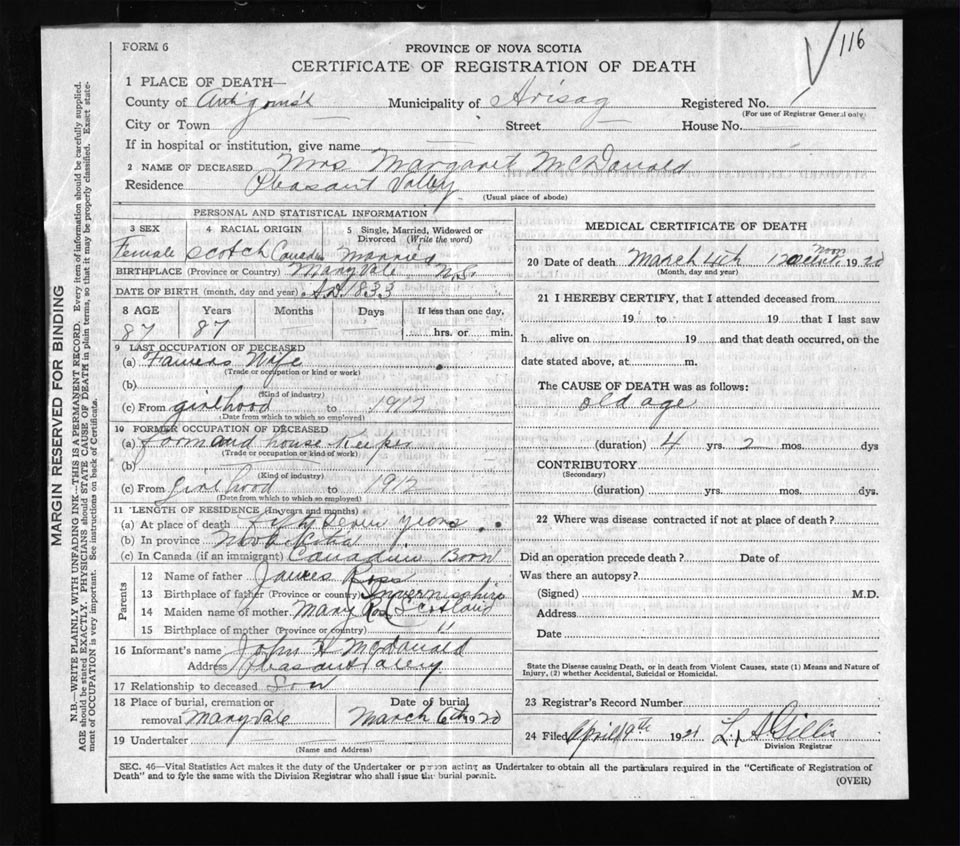 116
FORM 6
PROVINCE OF NOVA SCOTIA
CERTIFICATE OF REGISTRATION OF DEATH
1 PLACE OF DEATH—
County of Antigonish Municipality of Arisag Registered No. 1
(For use of Registrar General only)
City or Town Street House No.
If in hospital or institution, give name
2 NAME OF DECEASED Mrs Margaret McDonald
Residence Pleasant Valley
(Usual place of abode)
PERSONAL AND STATISTICAL INFORMATION
3 SEX 4 RACIAL ORIGIN 5 Single, Married, Widowed or Divorced (Write the word)
Female Scotch Canadian Married
BIRTHPLACE (Province or Country) Maryvale N.S.
DATE OF BIRTH (month, day and year) A.D. 1833
8 AGE Years Months Days If less than one day,
87 87 hrs. or min.
9 LAST OCCUPATION OF DECEASED
(a) Farmers Wife
(Trade or occupation or kind or work)
(b)
(Kind of industry)
(c) From girlhood to 1912
(Date from which to which so employed)
10 FORMER OCCUPATION OF DECEASED
(a) farm and house keeper
(Trade or occupation or kind of work)
(b)
(Kind of industry)
(c) From girlhood to 1912
(Date from which to which so employed)
11 LENGTH OF RESIDENCE (In years and months)
(a) At place of death Fifty Seven years
(b) In province
(c) In Canada (if an immigrant) Canadian Born
Parents
12 Name of father James Ross
13 Birthplace of father (Province or country) Invernisshire
Scotland
14 Maiden name of mother Mary Ross
15 Birthplace of mother (Province or country) "
16 Informant's name John H McDonald
Address Pleasant Valley
17 Relationship to deceased Son
18 Place of burial, cremation or removal Maryvale Date of burial March 6th 1920
19 Undertaker
(Name and Address)
MEDICAL CERTIFICATE OF DEATH
20 Date of death March 4th 12 Noon 1920
(Month, day and year)
21 I HEREBY CERTIFY, that I attended deceased from
19 to 19 that I last saw
h alive on 19 and that death occurred, on the
date stated above, at m.
The CAUSE OF DEATH was as follows:
old age
(duration) 4 yrs. 2 mos. dys
CONTRIBUTORY
(Secondary)
(duration) yrs. mos. dys.
22 Where was disease contracted if not at place of death?
Did an operation precede death? Date of
Was there an autopsy?
(Signed) M.D.
Address
Date
State the Disease causing Death, or in death from Violent Causes, state (1) Means and Nature of
Injury, (2) whether Accidental, Suicidal or Homicidal.
23 Registrar's Record Number
24 Filed April 19th 1921 L. A Gillis
Division Registrar
SEC. 46—Vital Statistics Act makes it the duty of the Undertaker or person acting as Undertaker to obtain all the particulars required in the "Certificate of Registration of
Death" and to fyle the same with the Division Registrar who shall issue the burial permit.
(OVER)
MARGIN RESERVED FOR BINDING
N.B.—WRITE PLAINLY WITH UNFADING INK—THIS IS A PERMANENT RECORD. Every item of information should be carefully supplied.
AGE should be stated EXACTLY. PHYSICIANS should STATE CAUSE OF DEATH in plain terms, so that it may be properly classified. Exact state-
ment of OCCUPATION is very important. See instructions on back of Certificate.